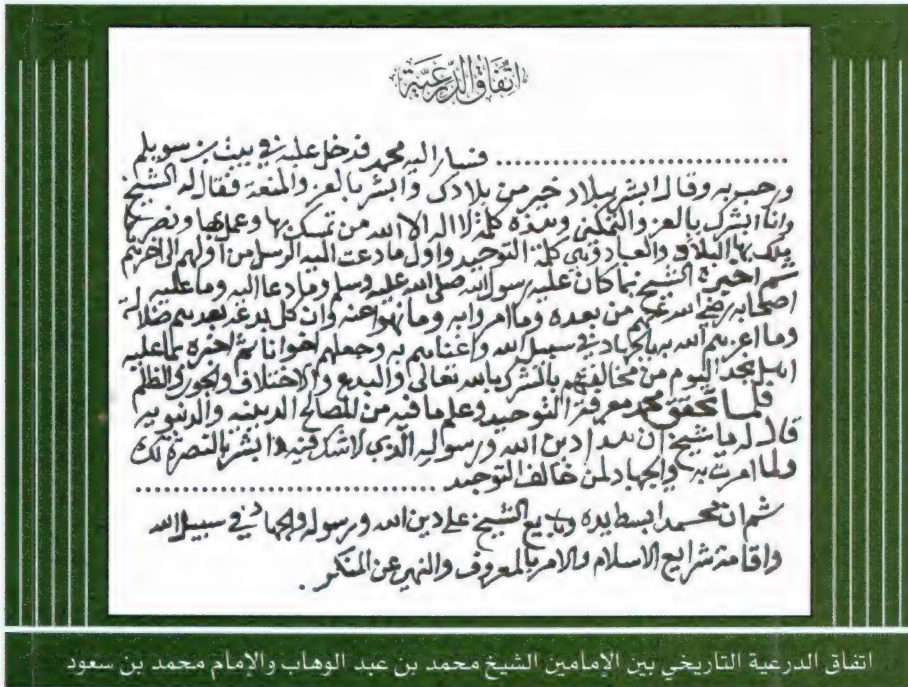 اتفاق الدرعية
................................ فسار اليه محمد فدخل عليه في بيت بن سويلم
ورحب به وقال ابشر ببلاد خير من بلادك وابشر بالعز والمنعة فقال له الشيخ
وانا ابشرك بالعز والتمكين وهذه كلمة لا اله الا الله من تمسك بها وعمل بها ونصرها
ملك بها البلاد والعباد وهي كلمة التوحيد واول ما دعت اليه الرسل من اولهم الى اخرهم
ثم اخبره الشيخ بما كان عليه رسول الله صلى الله عليه وسلم وما دعا اليه وما عليه
اصحابه رضي الله عنهم من بعده وما امروا به وما نهوا عنه وان كل بدعة بعدهم ضلالة
وما اعزهم الله به بالجهاد في سبيل الله واغناهم به وجعلهم اخوانا ثم اخبره بما عليه
اهل نجد اليوم من مخالفتهم بالشرك بالله تعالى والبدع والاختلاف والجور والظلم
فلما تحقق محمد معرفة التوحيد وعلم ما فيه من المصالح الدينيه والدنيويه
قال له يا شيخ ان هذا دين الله ورسوله الذي لا شك فيه وابشر بالنصرة لك
ولما امرت به والجهاد لمن خالف التوحيد ................................
ثم ان محمد ابسط يده وبايع الشيخ على دين الله ورسوله والجهاد في سبيل الله
واقامة شرايع الاسلام والامر بالمعروف والنهي عن المنكر .
اتفاق الدرعية التاريخي بين الإمامين الشيخ محمد بن عبد الوهاب والإمام محمد بن سعود